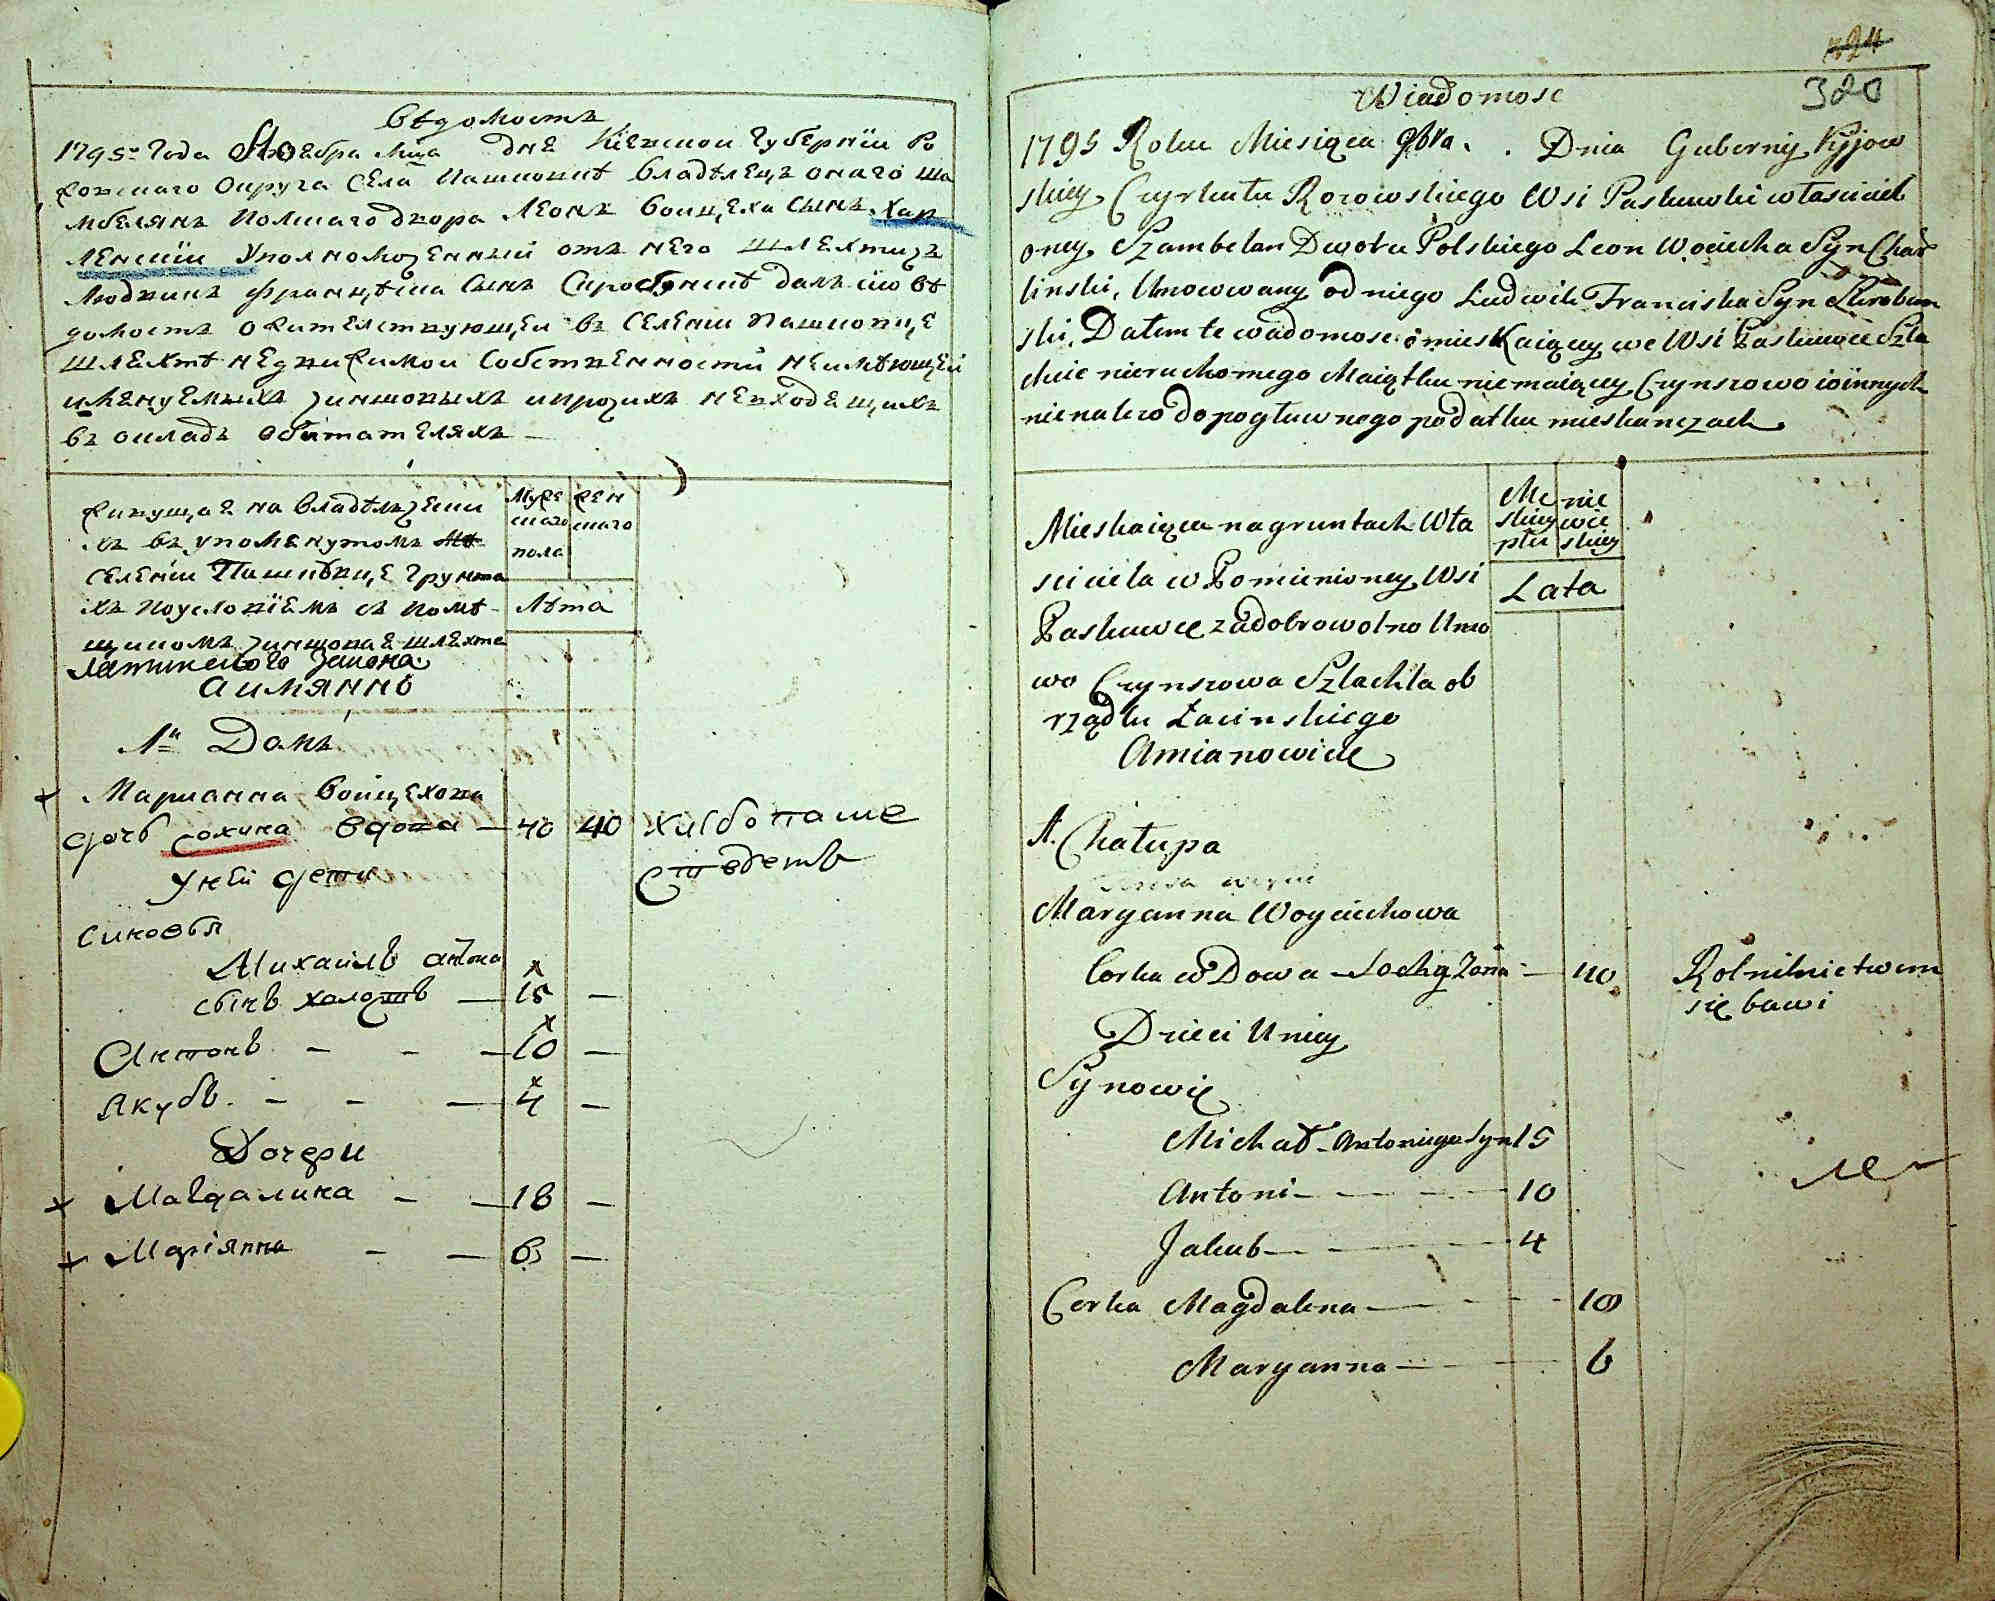 Вѣдомость
1795го Года Ноебра Мца дне Кіевской Губерніи Ро
жовскаго округа села Пашковкѣ владѣлецъ онаго ша
мбелянъ полскаго двора Леонъ Войцеха сынъ Хар
ленскіи Уполномоченный отъ него шляхтичъ
Людвикъ Францѣшка сынъ далъ сію вѣ
домость о жителствующеи въ селеніи Пашковце
шляхтѣ недвижимои собственности неимѣющеи
имѣнуемыхъ чиншовыхъ и прочихъ невходящихъ
въ окладъ обитателяхъ
живущае на владѣлчески
хъ въ упомянутомъ
селеніи Пашковце грунта
хъ по условіемъ съ помѣ-
щикомъ чиншовае шляхта
Латинского закона
а имянно
Муже
скаго
пола
жен
скаго
Лѣта
1й Домъ
Марианна Войцехова
дочь сохина вдова — 40 40 хлѣбопаше
ствоветъ
у ней дети
синовья
Михаилъ антона
сынъ холостъ — 15 —
Антонъ - - — 10 —
Якубъ. - - — 4 —
Дочери
Магдалина - — 18 —
Маріянна - — 6 —
324
320
Wiadomosc
1795 Roku Miesiąca 9bra. . Dnia Guberniy Kyjow
skiey Cyrkułu Rozowskiego Wsi Paskuwki własciciel
oney Szambelan Dworu Polskiego Leon Wociecha Syn Char
linski, Umocowany od niego Ludwik Franciska Syn Skrobun
ski, Dałem te wiadomosc o mieskaiącey we Wsi Paskuwce Szla
chcie nieruchomego Maiątku niemaiącey Czynszowo i oinnych
nienalezo do pogłuwnego podatku mieskanczach
Mieskaiąca na gruntach Wła
sciciela w Pomienioney Wsi
Paskuwce za dobrowolno Umo
wo Czynszowa Szlachta ob
rządku Łacinskiego
Amianowicie
Me
skiey
płci
nie
wie
skiey
Lata
1. Chałupa
Maryanna Woyciechowa
Corka wDowa - Sochy Zona - — 40 Rolnictwem
się bawi
Dzieci Uniey
Synowie
Michał - Antoniego Syn 15
Antoni - - - - 10
Jakub - - - 4
Corka Magdalena - - - - 18
Maryanna - - - 6